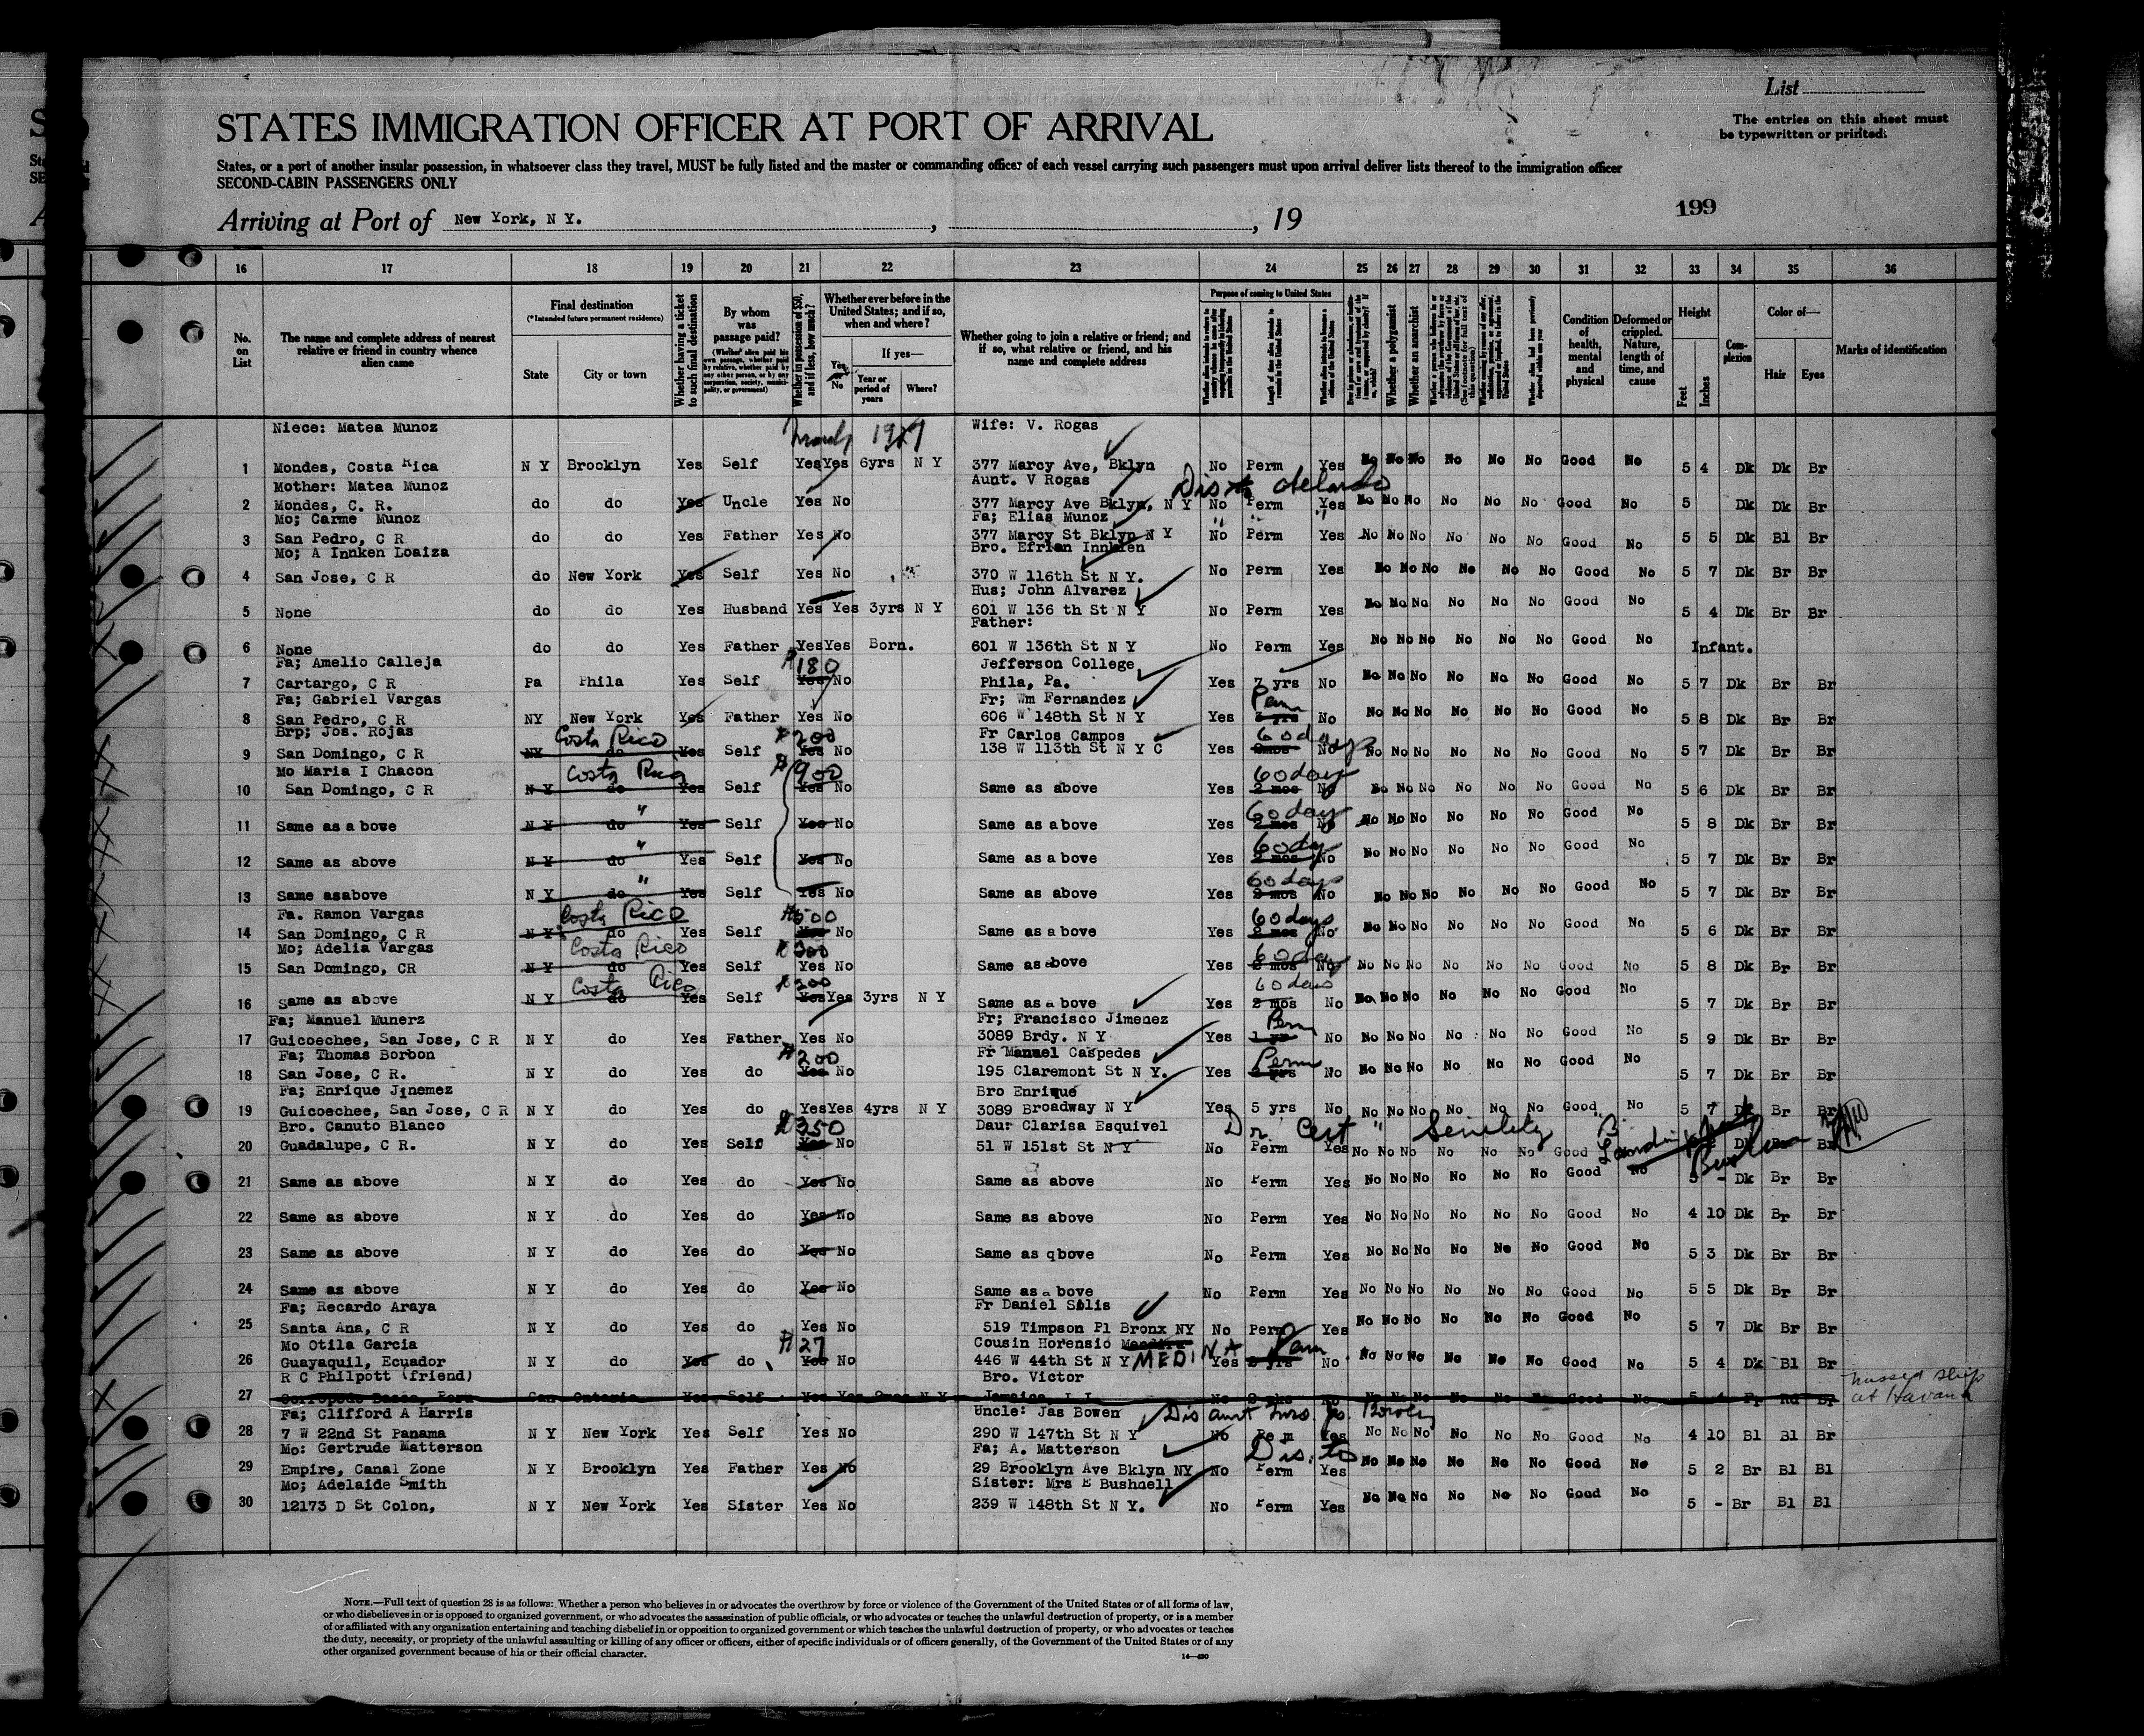 List
The entries on this sheet must
be typewritten or printed.
STATES IMMIGRATION OFFICER AT PORT OF ARRIVAL
States, or a port of another insular possession, in whatsoever class they travel, MUST be fully listed and the master or commanding officer of each vessel carrying such passengers must upon arrival deliver lists thereof to the immigration officer
SECOND-CABIN PASSENGERS ONLY
199
Arriving at Port of New York, N Y. , , 19
16 17 18 19 20 21 22 23 24 25 26 27 28 29 30 31 32 33 34 35 36
No. on List
The name and complete address of nearest relative or friend in country whence alien came
Final destination
(*Intended future permanent residence)
State
City or town
Whether having a ticket to such final destination
By whom was passage paid?
Whether in possession of $50, and if less, how much?
Whether ever before in the United States; and if so, when and where?
Yes or No
If yes—
Year or period of years
Where?
Whether going to join a relative or friend; and if so, what relative or friend, and his name and complete address
Purpose of coming to United States
Whether a polygamist
Whether an anarchist
Condition of health, mental and physical
Deformed or crippled. Nature, length of time, and cause
Height
Feet
Inches
Complexion
Color of—
Hair
Eyes
Marks of identification
Niece: Matea Munoz Wife: V. Rogas
1 Mondes, Costa Rica N Y Brooklyn Yes Self Yes Yes 6yrs N Y 377 Marcy Ave, Bklyn No Perm Yes No No No No No No Good No 5 4 Dk Dk Br
Mother: Matea Munoz Aunt. V Rogas
2 Mondes, C. R. do do Yes Uncle Yes No 377 Marcy Ave Bklyn, N Y No Perm Yes No No No No No No Good No 5 Dk Dk Br
Mo; Carme Munoz Fa; Elias Munoz
3 San Pedro, C R do do Yes Father Yes No 377 Marcy St Bklyn N Y No Perm Yes No No No No No No Good No 5 5 Dk Bl Br
Mo; A Innken Loaiza Bro. Efrian Innkien
4 San Jose, C R do New York Yes Self Yes No 370 W 116th St N Y. No Perm Yes No No No No No No Good No 5 7 Dk Br Br
Hus; John Alvarez
5 None do do Yes Husband Yes Yes 3yrs N Y 601 W 136 th St N Y No Perm Yes No No No No No No Good No 5 4 Dk Br Br
Father:
6 None do do Yes Father Yes Yes Born. 601 W 136th St N Y No Perm Yes No No No No No No Good No Infant.
Fa; Amelio Calleja 180 Jefferson College
7 Cartargo, C R Pa Phila Yes Self Yes No Phila, Pa. Yes 7 yrs No No No No No No No Good No 5 7 Dk Br Br
Fa; Gabriel Vargas Fr; Wm Fernandez Perm
8 San Pedro, C R NY New York Yes Father Yes No 606 W 148th St N Y Yes No No No No No No No Good No 5 8 Dk Br Br
Brp; Jos. Rojas Costa Rico $200 Fr Carlos Campos 60 days
9 San Domingo, C R NY do Yes Self Yes No 138 W 113th St N Y C Yes No No No No No No No Good No 5 7 Dk Br Br
Mo Maria I Chacon Costa Rica $900 60 days
10 San Domingo, C R N Y do Yes Self Yes No Same as above Yes 2 mos No No No No No No No Good No 5 6 Dk Br Br
" 60 days
11 Same as a bove N Y do Yes Self Yes No Same as a bove Yes 2 mos No No No No No No No Good No 5 8 Dk Br Br
" 60 day
12 Same as above N Y do Yes Self Yes No Same as a bove Yes 2 mos No No No No No No No Good No 5 7 Dk Br Br
" 60 days
13 Same asabove N Y do Yes Self Yes No Same as above Yes 2 mos No No No No No No No Good No 5 7 Dk Br Br
Fa. Ramon Vargas Costa Rico 60 days
14 San Domingo, C R N Y do Yes Self Yes No Same as a bove Yes 2 mos No No No No No No No Good No 5 6 Dk Br Br
Mo; Adelia Vargas Costa Rico 60 day
15 San Domingo, CR N Y do Yes Self Yes No Same as above Yes 2 mos No No No No No No No Good No 5 8 Dk Br Br
Costa Rico $200 60 days
16 Same as above N Y do Yes Self Yes Yes 3yrs N Y Same as a bove Yes 2 mos No No No No No No No Good No 5 7 Dk Br Br
Fa; Manuel Munerz Fr; Francisco Jimenez Perm
17 Guicoechee, San Jose, C R N Y do Yes Father Yes No 3089 Brdy. N Y Yes 1 yr No No No No No No No Good No 5 9 Dk Br Br
Fa; Thomas Borbon $200 Fr Manuel Caspedes Perm
18 San Jose, C R. N Y do Yes do Yes No 195 Claremont St N Y. Yes No No No No No No No Good No 5 7 Dk Br Br
Fa; Enrique Jinemez Bro Enrique
19 Guicoechee, San Jose, C R N Y do Yes do Yes Yes 4yrs N Y 3089 Broadway N Y Yes 5 yrs No No No No No No No Good No 5 7 Dk Br Br
Bro. Canuto Blanco $350 Daur Clarisa Esquivel Dr. Cert " Senility
20 Guadalupe, C R. N Y do Yes Self Yes No 51 W 151st St N Y No Perm Yes No No No No No No Good Dk Br
21 Same as above N Y do Yes do Yes No Same as above No Perm Yes No No No No No No Good No 5 - Dk Br Br
22 Same as above N Y do Yes do Yes No Same as above No Perm Yes No No No No No No Good No 4 10 Dk Br Br
23 Same as above N Y do Yes do Yes No Same as qbove No Perm Yes No No No No No No Good No 5 3 Dk Br Br
24 Same as above N Y do Yes do Yes No Same as a bove No Perm Yes No No No No No No Good No 5 5 Dk Br Br
Fa; Recardo Araya Fr Daniel Solis
25 Santa Ana, C R N Y do Yes do Yes No 519 Timpson Pl Bronx NY No Perm Yes No No No No No No Good No 5 7 Dk Br Br
Mo Otila Garcia $27 Cousin Horensio MEDINA Perm
26 Guayaquil, Ecuador N Y do Yes do Yes No 446 W 44th St N Y Yes No No No No No No No Good No 5 4 Dk Bl Br
R C Philpott (friend) Bro. Victor
27 Can Ontario Yes Self Yes Yes N Y Jamaica, L I No missed ship at Havana
Fa; Clifford A Harris Uncle: Jas Bowen
28 7 W 22nd St Panama N Y New York Yes Self Yes No 290 W 147th St N Y No Pe m Yes No No No No No No Good No 4 10 Bl Bl Br
Mo: Gertrude Matterson Fa; A. Matterson Dis. to
29 Empire, Canal Zone N Y Brooklyn Yes Father Yes No 29 Brooklyn Ave Bklyn NY No Perm Yes No No No No No No Good No 5 2 Br Bl Bl
Mo; Adelaide Smith Sister: Mrs E Bushnell
30 12173 D St Colon, N Y New York Yes Sister Yes No 239 W 148th St N Y. No Perm Yes No No No No No No Good No 5 - Br Bl Bl
NOTE.—Full text of question 28 is as follows: Whether a person who believes in or advocates the overthrow by force or violence of the Government of the United States or of all forms of law,
or who disbelieves in or is opposed to organized government, or who advocates the assassination of public officials, or who advocates or teaches the unlawful destruction of property, or is a member
of or affiliated with any organization entertaining and teaching disbelief in or opposition to organized government or which teaches the unlawful destruction of property, or who advocates or teaches
the duty, necessity, or propriety of the unlawful assaulting or killing of any officer or officers, either of specific individuals or of officers generally, of the Government of the United States or of any
other organized government because of his or their official character.
14—430